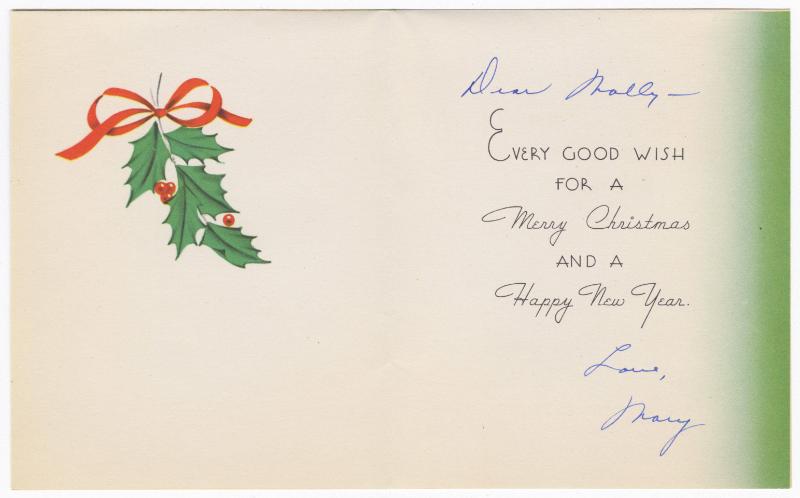 Dear Molly—
EVERY GOOD WISH
FOR A
Merry Christmas
AND A
Happy New Year.
Love,
Mary